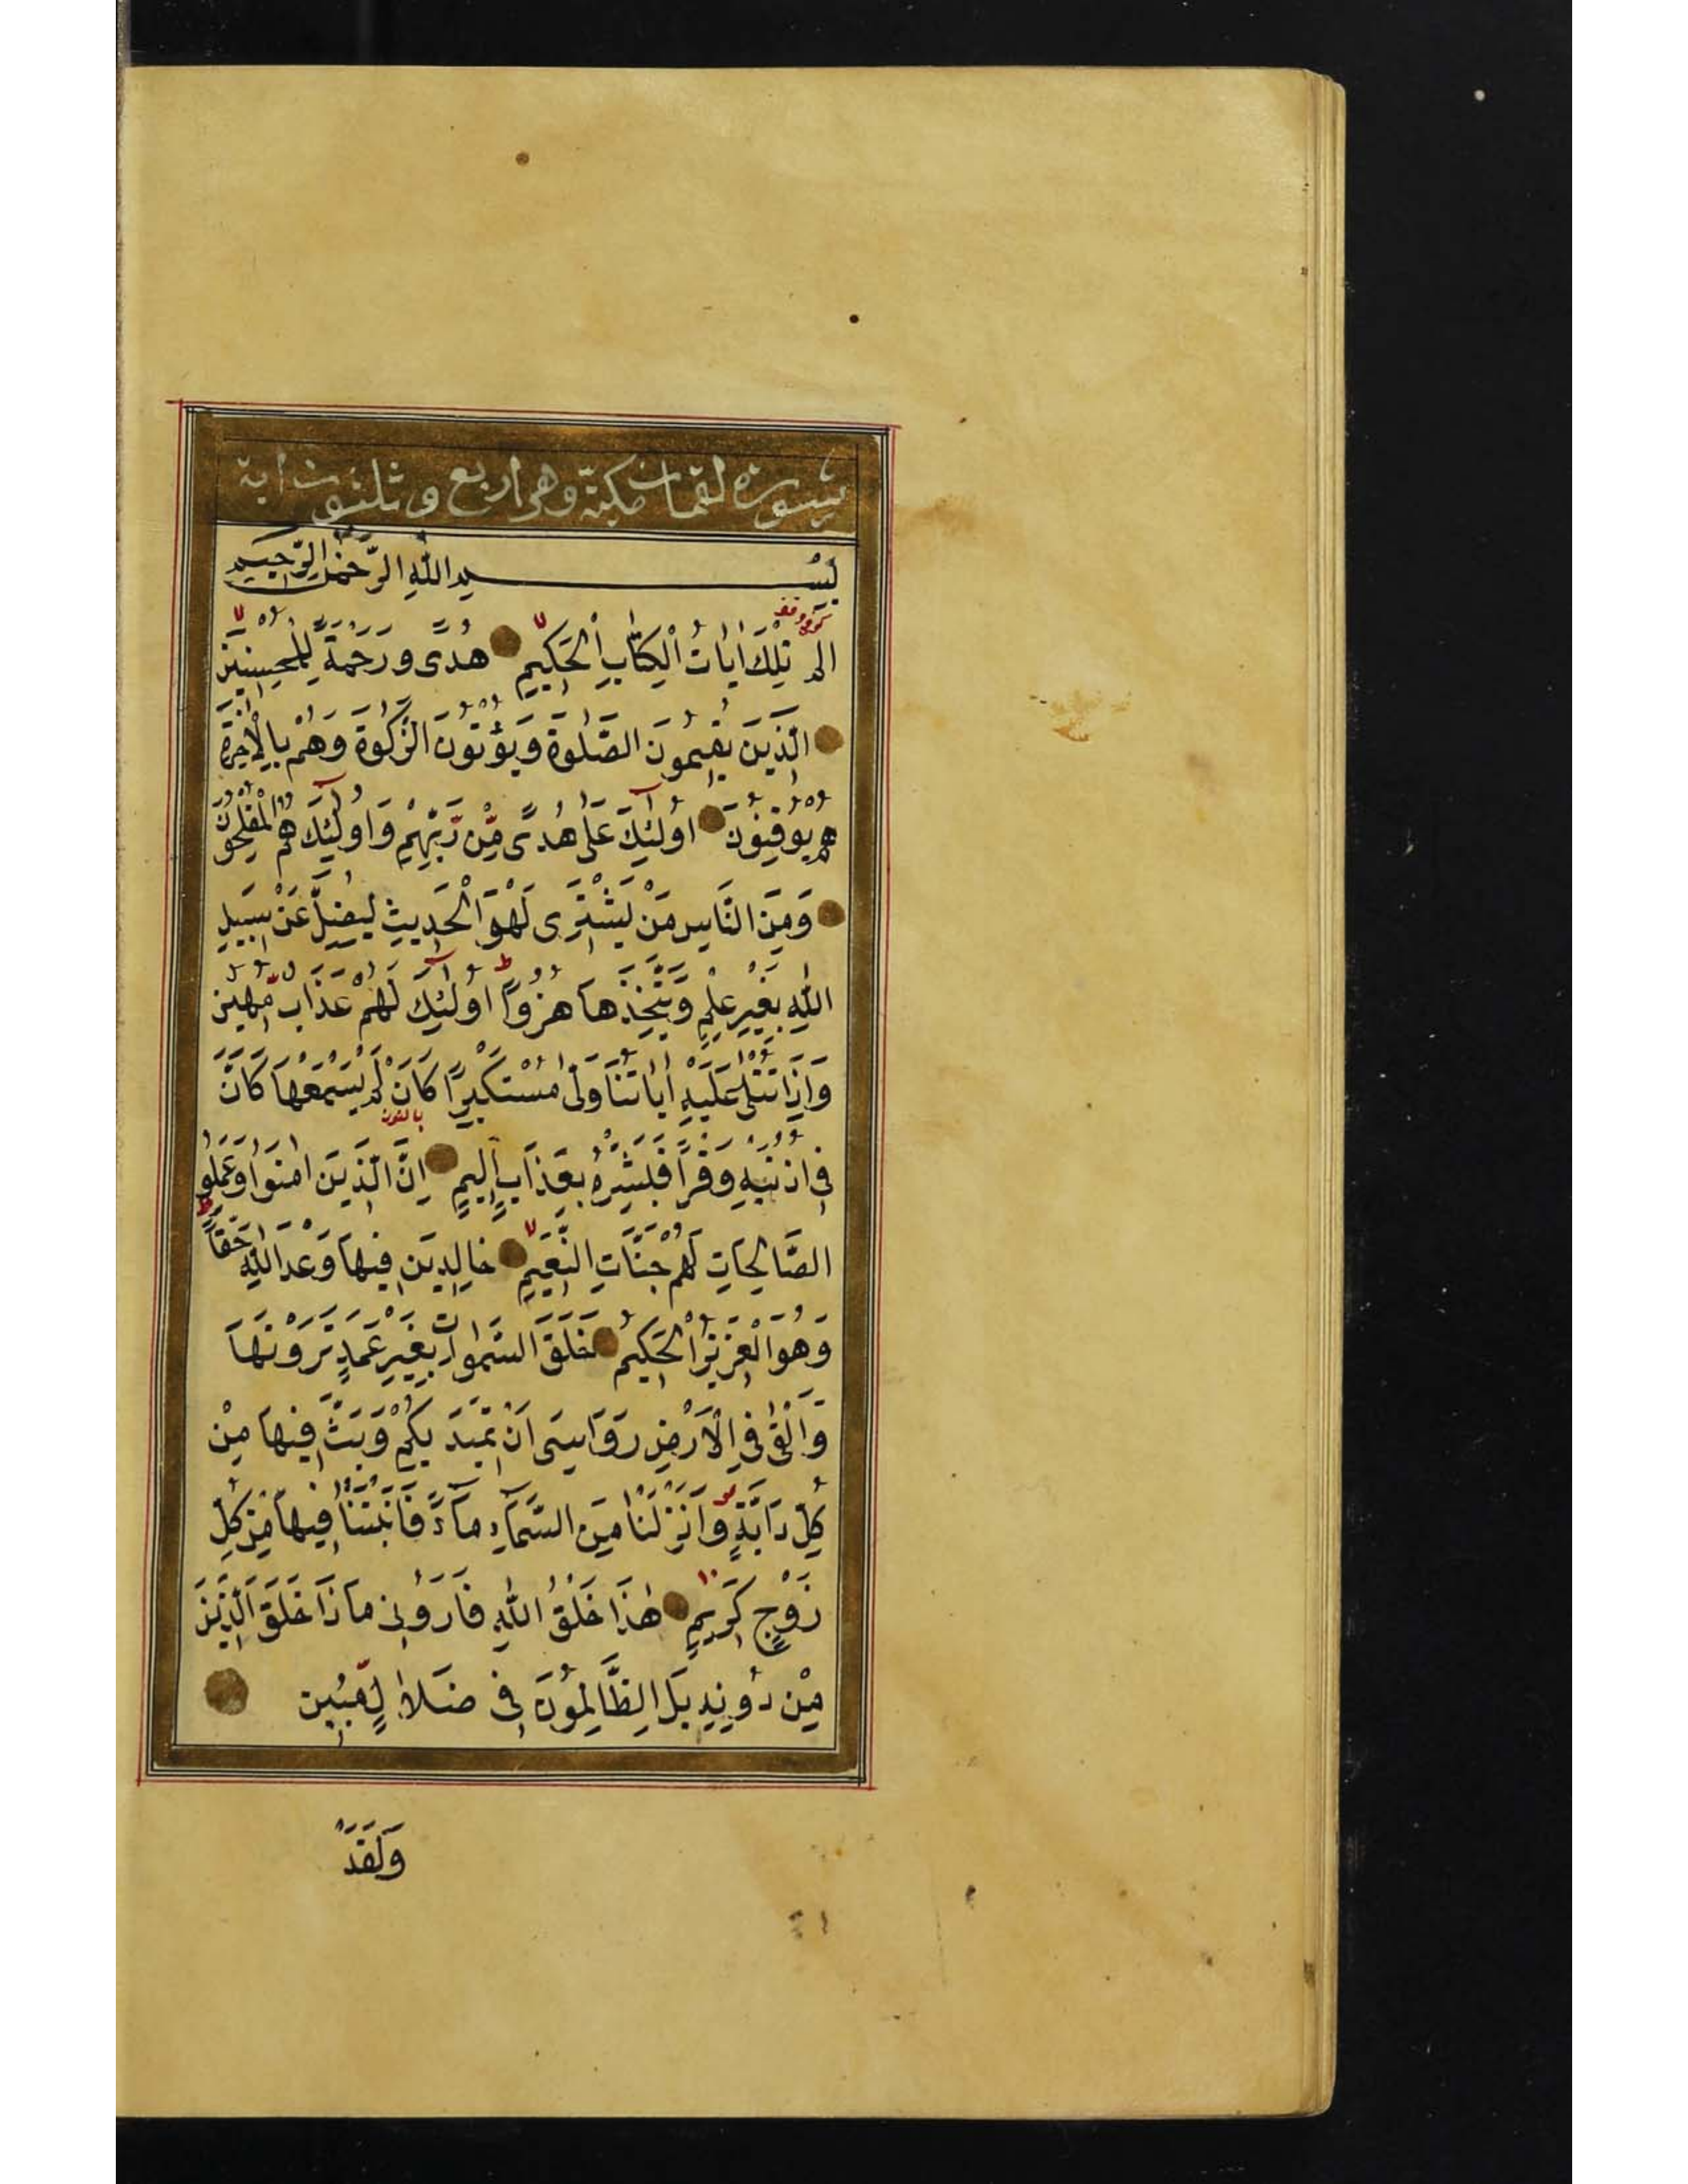 سورة لقمان مكية وهى اربع وثلثون اية
بِسْمِ اللّٰهِ الرَّحْمٰنِ الرَّحِيمِ
كوفى وقف
الم تِلْكَ اٰيَاتُ الْكِتَابِ الْحَكِيمِ هُدًى وَرَحْمَةً لِلْمُحْسِنِيَنَ
الَّذِينَ يُقِيمُونَ الصَّلٰوةَ وَيُؤْتُونَ الزَّكٰوةَ وَهُمْ بِالْاٰخِرَةِ
هُمْ يُوقِنُونَ اُولٰٓئِكَ عَلٰى هُدًى مِّنْ رَّبِّهِمْ وَاُولٰٓئِكَ هُمُ الْمُفْلِحُونَ
وَمِنَ النَّاسِ مَنْ يَشْتَرِى لَهْوَ الْحَدِيثِ لِيُضِلَّ عَنْ سَبِيلِ
اللّٰهِ بِغَيْرِ عِلْمٍ وَيَتَّخِذَهَا هُزُوًا ط اُولٰٓئِكَ لَهُمْ عَذَابٌ مُّهِينٌ
وَاِذَا تُتْلٰى عَلَيْهِ اٰيَاتُنَا وَلّٰى مُسْتَكْبِرًا كَاَنْ لَمْ يَسْمَعْهَا كَاَنَّ
فِى اُذُنَيْهِ وَقْرًا فَبَشِّرْهُ بِعَذَابٍ اَلِيمٍ اِنَّ الَّذِينَ اٰمَنُوا وَعَمِلُوا
الصَّالِحَاتِ لَهُمْ جَنَّاتُ النَّعِيمِ خَالِدِينَ فِيهَا وَعْدَ اللّٰهِ حَقًّا ط
وَهُوَ الْعَزِيزُ الْحَكِيمُ خَلَقَ السَّمٰوَاتِ بِغَيْرِ عَمَدٍ تَرَوْنَهَا
وَاَلْقٰى فِى الْاَرْضِ رَوَاسِىَ اَنْ تَمِيدَ بِكُمْ وَبَثَّ فِيهَا مِنْ
كُلِّ دَابَّةٍ وَاَنْزَلْنَا مِنَ السَّمَآءِ مَآءً فَاَنْبَتْنَا فِيهَا مِنْ كُلِّ
زَوْجٍ كَرِيمٍ هٰذَا خَلْقُ اللّٰهِ فَاَرُونِى مَاذَا خَلَقَ الَّذِينَ
مِنْ دُونِهِ بَلِ الظَّالِمُونَ فِى ضَلَالٍ مُّبِينٍ
وَلَقَدْ